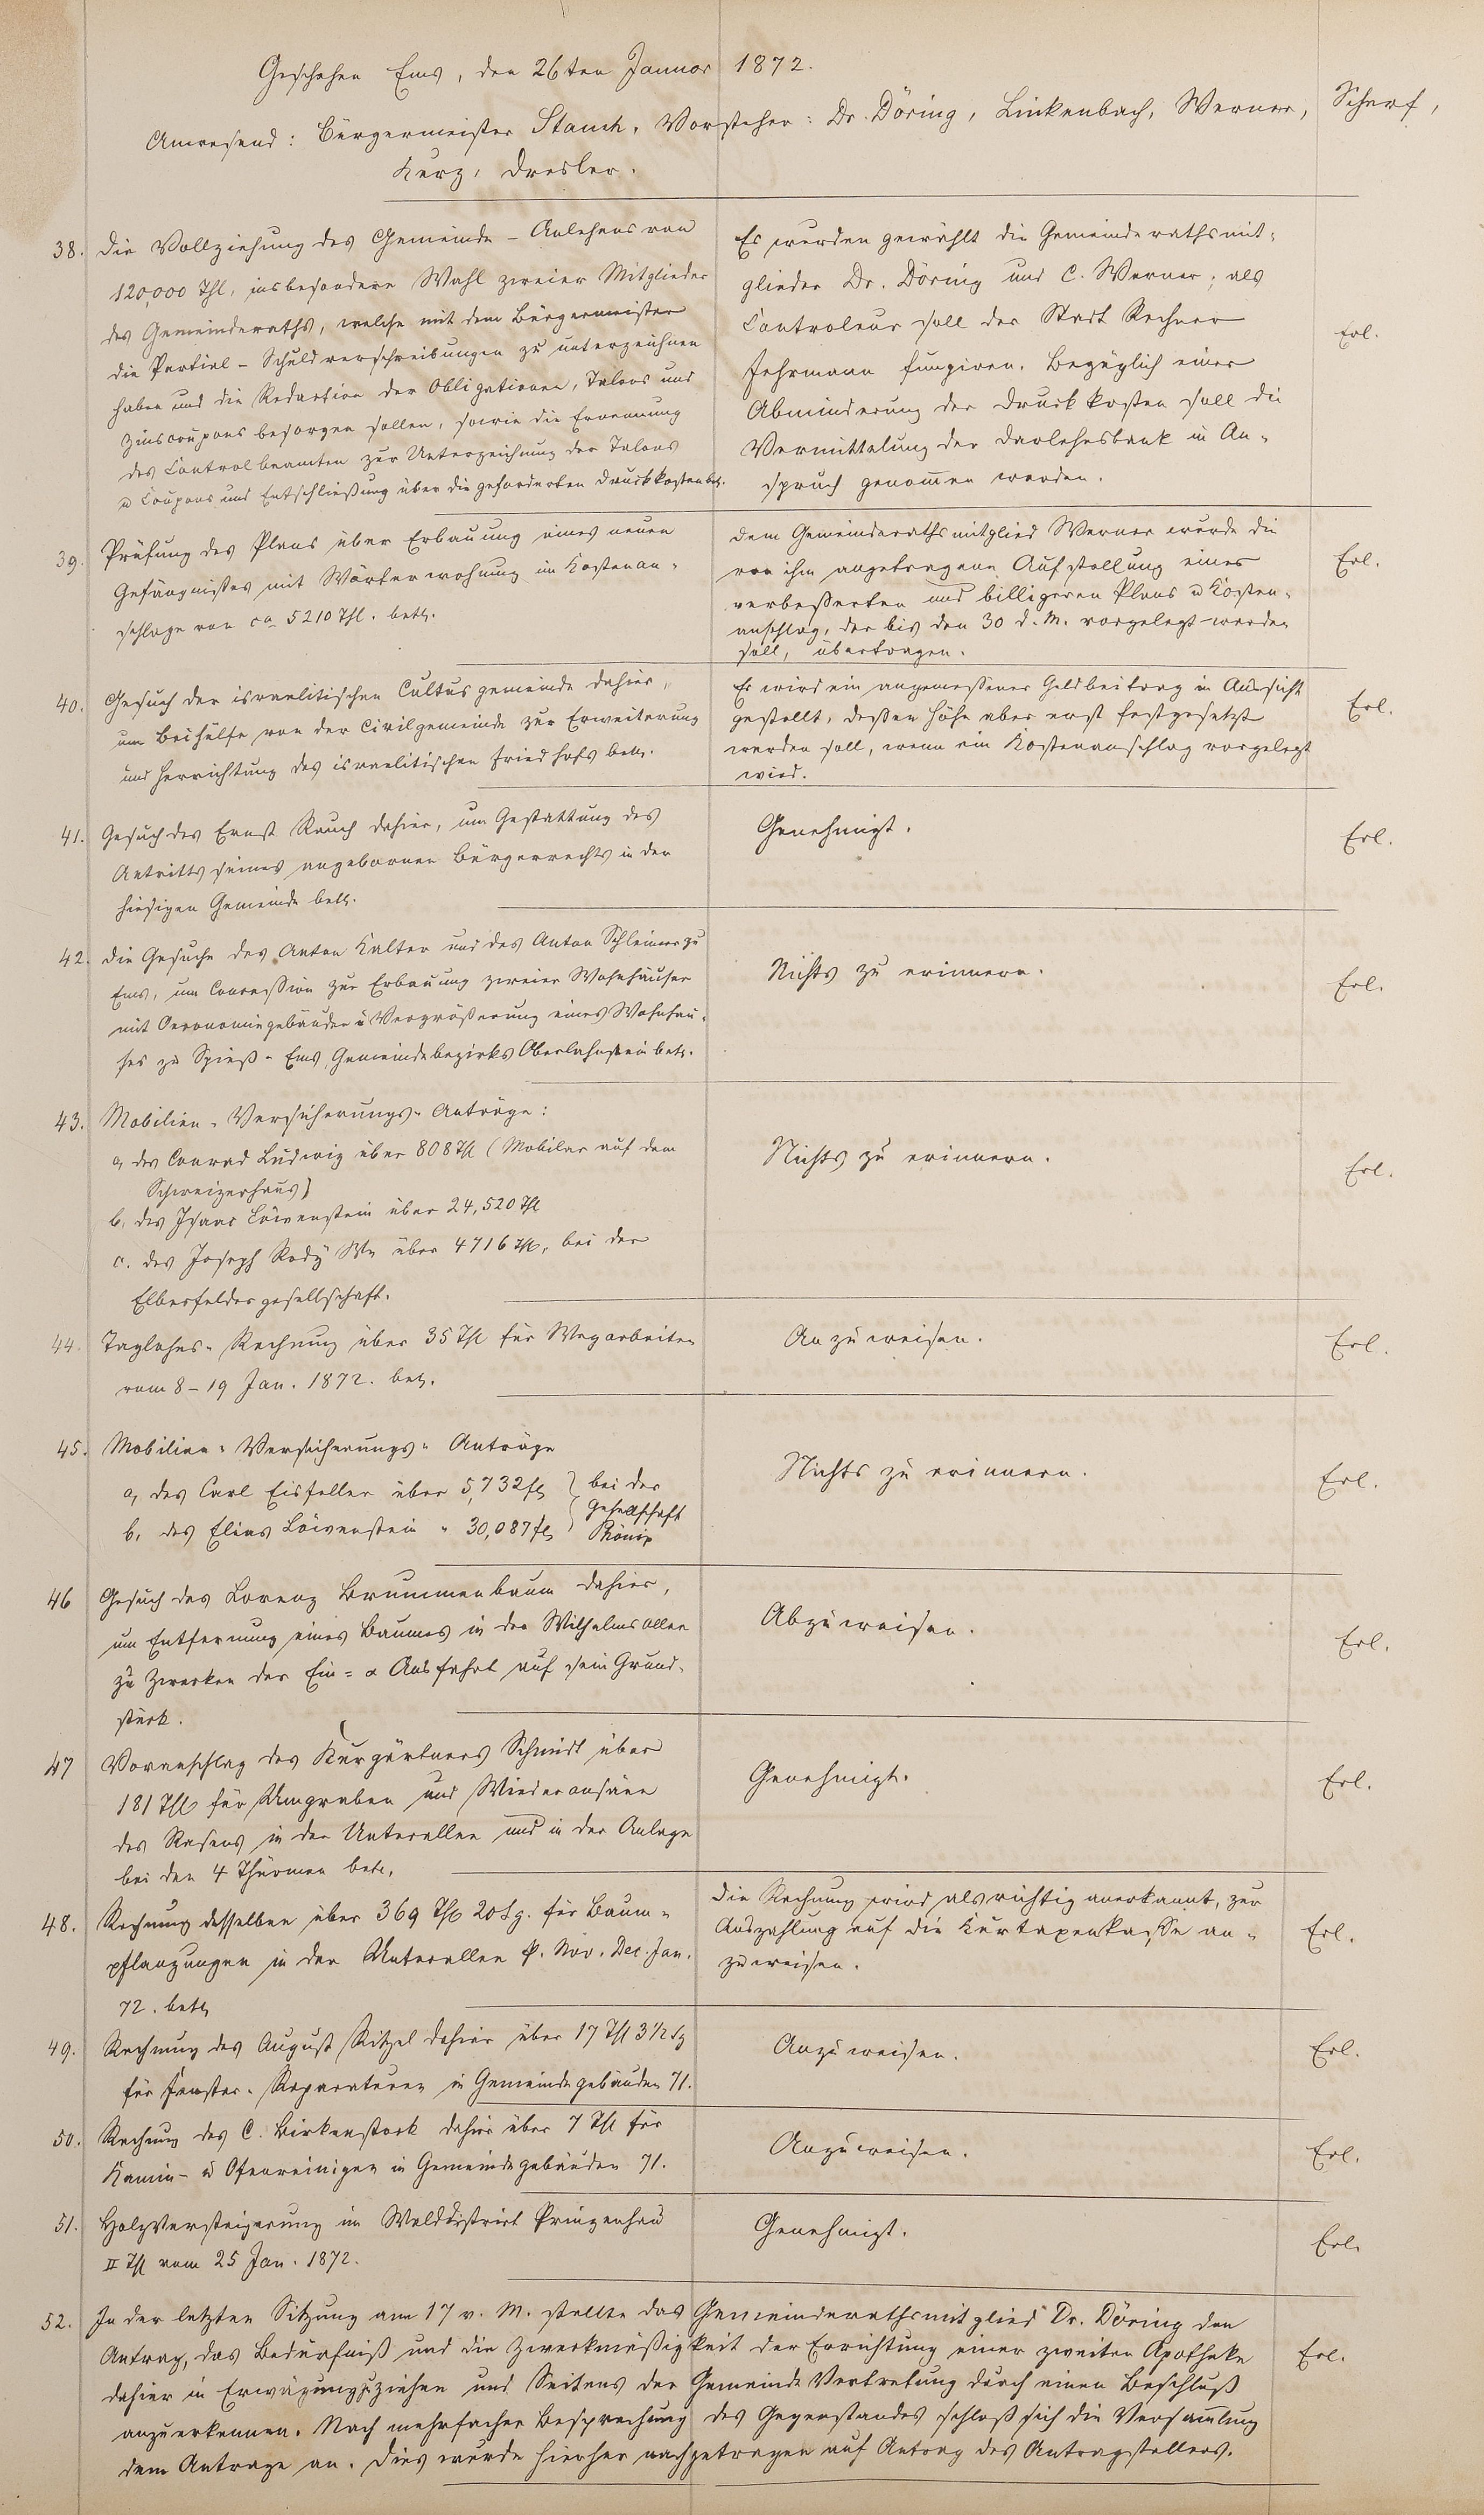 Geschehen Ems, den 26ten Januar 1872.
Anwesend: Bürgermeister Stauch, Vorsteher: Dr. Döring, Linkenbach, Werner, Scherf,
Kurz, Dresler.
38. Die Vollziehung des Gemeinde-Anlehens von
120,000 Thl, insbesondere Wahl zweier Mitglieder
des Gemeinderaths, welche mit dem Bürgermeister
die Partial-Schuldverschreibungen zu unterzeichnen
haben und die Redaction der Obligationen, Talons und
Zinscoupons besorgen sollen, sowie die Ernennung
des Controlbeamten zur Unterzeichnung der Talons
u Coupons und Entschließung über die geforderten Druckkosten betr.
Es wurden gewählt die Gemeinderathsmit-
glieder Dr. Döring und C. Werner; als
Controleur soll der Stadt Rechner
Fehrmann fungiren. Bezüglich einer
Abminderung der Druckkosten soll die
Vermittelung der Darlehesbank in An-
spruch genommen werden.
Erl.
39. Prüfung des Plans über Erbauung eines neuen
Gefängnißes mit Wärterwohnung im Kostenan-
schlage von ca 5210 Thl. betr.
Dem Gemeinderathsmitglied Werner wurde die
von ihm angetragene Aufstellung eines
verbeßerten und billigeren Plans u Kosten-
anschlag, der bis den 30 d. M. vorgelegt werden
soll, übertragen.
Erl.
40. Gesuch der israelitischen Cultusgemeinde dahier,
um Beihülfe von der Civilgemeinde zur Erweiterung
und Herrichtung des israelitischen Friedhofs betr.
Es wird ein angemeßener Geldbeitrag in Aussicht
gestellt, deßen Höhe aber erst festgesetzt
werden soll, wenn ein Kostenanschlag vorgelegt
wird.
Erl.
41. Gesuch des Ernst Rauch dahier, um Gestattung des
Antritts seines angebornen Bürgerrechts in der
hiesigen Gemeinde betr.
Genehmigt.
Erl.
42. Die Gesuche des Anton Kalter und des Anton Schleimer zu
Ems, um Concession zur Erbauung zweier Wohnhäuser
mit Oeconomiegebäuden u Vergrößerung eines Wohnhau-
ses zu Spieß-Ems, Gemeindebezirks Oberlahnstein betr.
Nichts zu erinnern.
Erl.
43. Mobilien-Versicherungs-Anträge:
a, des Conrad Ludwig über 808 Thl (Mobilar auf dem
Schweizerhaus)
b, des Isaac Löwenstein über 24,520 Thl
c. des Joseph Rody über 4716 Thl, bei der
Elberfelder gesellschaft.
Nichts zu erinnern.
Erl.
44. Taglohns-Rechnung über 35 Thl für Wegarbeiten
vom 8-19 Jan. 1872. betr.
Anzuweisen.
Erl.
45. Mobilien-Versicherungs-Anträge
a, des Carl Eisfeller über 5,732 fl } bei der
b, des Elias Löwenstein " 30,087 fl } Gesellschaft
Phönix
Nichts zu erinnern.
Erl.
46 Gesuch des Lorenz Brummenbaum dahier,
um Entfernung eines Baumes in der Wilhelmsallee
zu Zwecken der Ein= & Ausfahrt auf sein Grund-
stück.
Abzuweisen.
Erl.
47 Voranschlag des Kurgärtners Schmidt über
181 Thl für Umgraben und Wiederansäen
des Rasens in der Unterallee und in der Anlage
bei den 4 Thürmen betr.
Genehmigt.
Erl.
48. Rechnung desselben über 369 Thl 20 Sg. für Baum-
pflanzungen in der Unterallee p. Nov. Dec. Jan.
72. betr
Die Rechnung wird als richtig anerkannt, zur
Auszahlung auf die Kurtaxenkasse an-
zuweisen.
Erl.
49. Rechnung des August Kitzel dahier über 17 Thl 3 1/2 Sg
für Fenster-Reparaturen in Gemeindegebäuden 71.
Anzuweisen.
Erl.
50. Rechnung des C. Birkenstock dahier über 7 Thl für
Kamin- u Ofenreinigen in Gemeindegebäuden 71.
Anzuweisen.
Erl.
51. Holzversteigerung im Walddistrict Pringenhau
II Thl vom 25 Jan. 1872.
Genehmigt.
Erl.
52. In der letzten Sitzung am 17 v. M. stellte das Gemeinderathsmitglied Dr. Döring den
Antrag, das Bedürfniß und die Zweckmäßigkeit der Errichtung einer zweiten Apotheke
dahier in Erwägung zu ziehen und Seitens der Gemeinde Vertretung durch einen Beschluß
anzuerkennen. Nach mehrfacher Besprechung des Gegenstandes schloß sich die Versammlung
dem Antrage an. Dies wurde hierher nachgetragen auf Antrag des Antragstellers.
Erl.